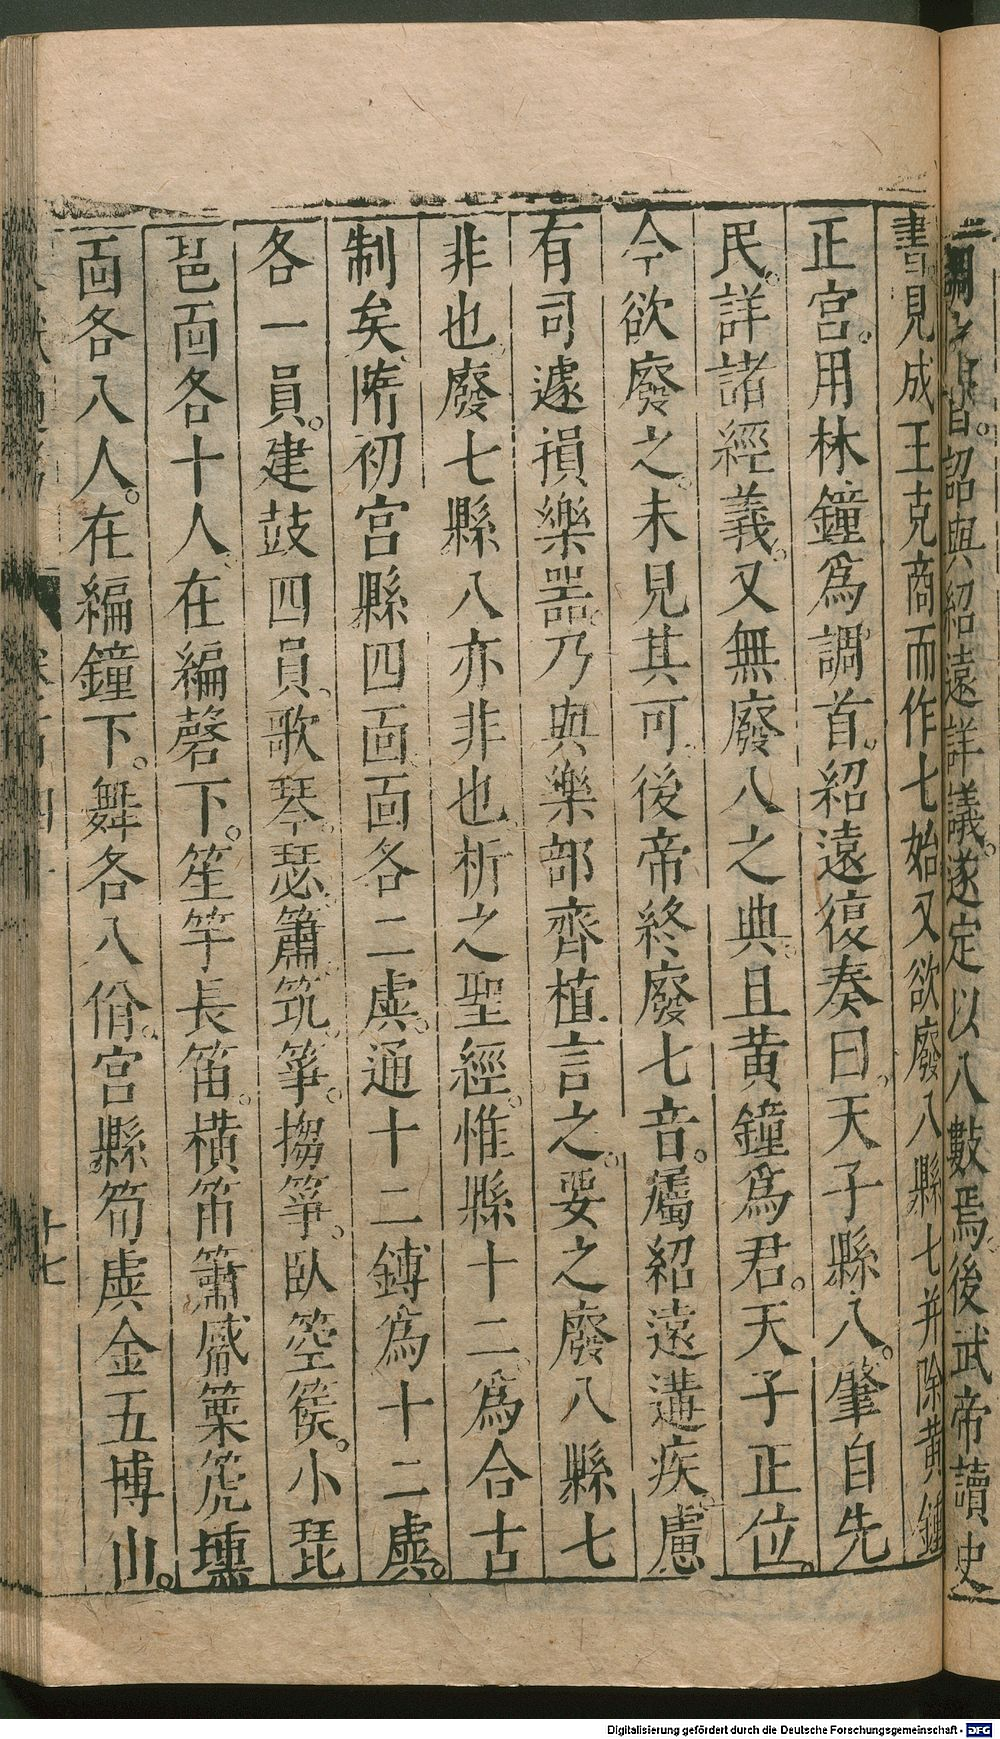 調之首。詔與紹遠詳議。遂定以八數焉。後武帝讀史
書。見成王克商而作七始又欲廢八縣七并除黃鍾
正宮。用林鐘爲調首。紹遠復奏曰。天子縣八。肇自先
民。詳諸經義。又無廢八之典。且黃鐘爲君。天子正位。
今欲廢之。未見其可。後帝終廢七音。屬紹遠遘疾。慮
有司遽損樂器。乃與樂部齊植言之。要之廢八縣七
非也。廢七縣八亦非也。折之聖經。惟縣十二。爲合古
制矣。隋初宮縣四面。面各二虡。通十二鎛爲十二虡。
各一員。建鼓四員。歌琴。瑟。簫。筑。箏。搊箏。臥箜篌。小琵
琶面各十人。在編磬下。笙竽長笛。橫笛簫觱篥篪壎
面各八人。在編鐘下。舞各八佾。宮縣筍虡金五博山。
十七
Digitalisierung gefördert durch die Deutsche Forschungsgemeinschaft - DFG